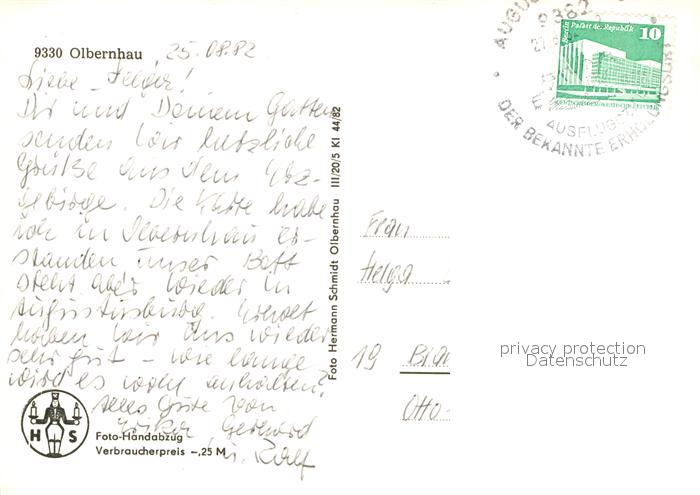 9330 Olbernhau 25.08.82
Liebe Helga!
Dir und Deinem Gatten
senden wir herzliche
Grüße aus dem Erz-
gebirge. Die Karte habe
ich in Olbernhau er-
standen unser Bett
steht aber wieder in
Augustusburg. Erholt
haben wir uns wieder
sehr gut – wie lange
wird es wohl anhalten?
Alles Gute von
Gerhard
u. Ralf
H S
Foto-Handabzug
Verbraucherpreis –,25 M
Foto Hermann Schmidt Olbernhau III/20/5 KI 44/82
Berlin Palast d. Republik
10
9382
AUSFLUG
DER BEKANNTE ERHOLUNGSORT
Frau
Helga
19
Otto-
privacy protection
Datenschutz